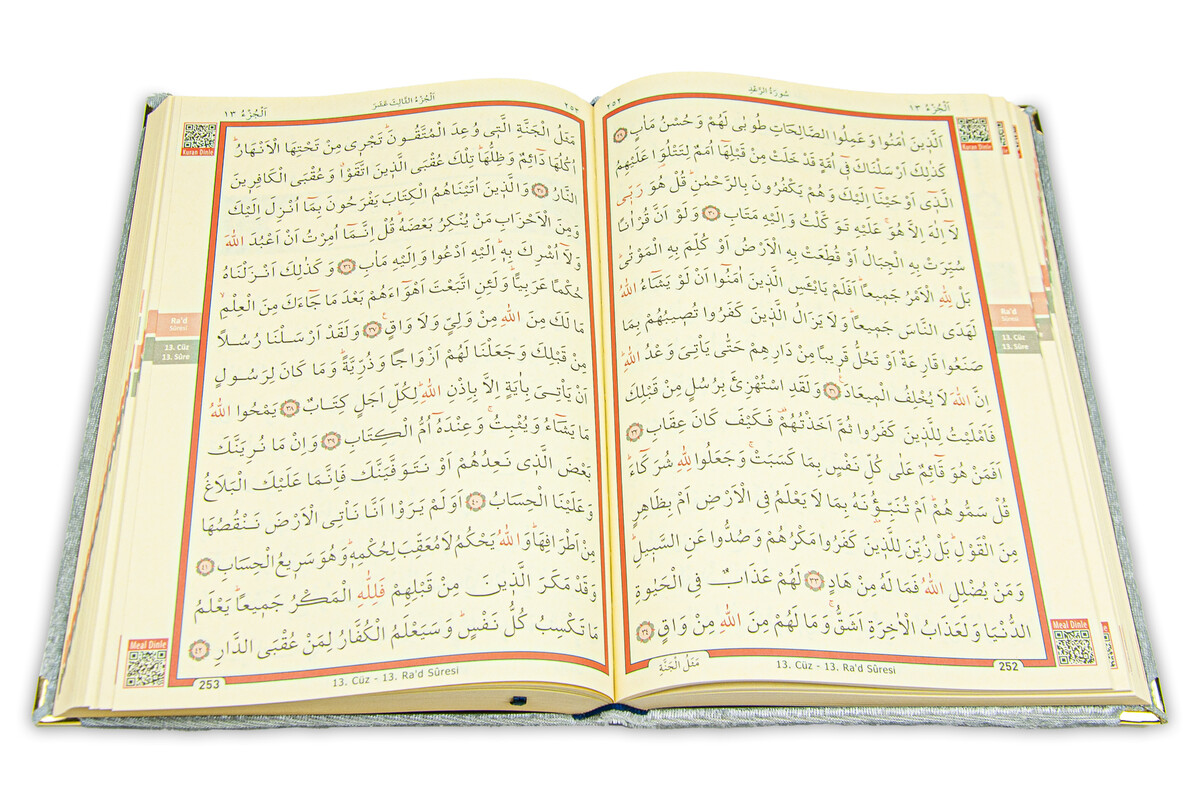 اَلْجُزْءُ ١٣
سُورَةُ الرَّعْدِ
٢٥٢
Kuran Dinle
اَلَّذِينَ اٰمَنُوا وَعَمِلُوا الصَّالِحَاتِ طُوبٰى لَهُمْ وَحُسْنُ مَاٰبٍ ٢٩
كَذٰلِكَ اَرْسَلْنَاكَ فٓى اُمَّةٍ قَدْ خَلَتْ مِنْ قَبْلِهَٓا اُمَمٌ لِتَتْلُوَا۬ عَلَيْهِمُ
الَّذٓى اَوْحَيْنَٓا اِلَيْكَ وَهُمْ يَكْفُرُونَ بِالرَّحْمٰنِۜ قُلْ هُوَ رَبّى
لَٓا اِلٰهَ اِلَّا هُوَۚ عَلَيْهِ تَوَكَّلْتُ وَاِلَيْهِ مَتَابِ ٣٠ وَلَوْ اَنَّ قُرْاٰنًا
سُيِّرَتْ بِهِ الْجِبَالُ اَوْ قُطِّعَتْ بِهِ الْاَرْضُ اَوْ كُلِّمَ بِهِ الْمَوْتٰىۜ
بَلْ لِلّٰهِ الْاَمْرُ جَميعًاۜ اَفَلَمْ يَايْـَٔسِ الَّذينَ اٰمَنُٓوا اَنْ لَوْ يَشَٓاءُ اللّٰهُ
لَهَدَى النَّاسَ جَميعًاۜ وَلَا يَزَالُ الَّذينَ كَفَرُوا تُصيبُهُمْ بِمَا
صَنَعُوا قَارِعَةٌ اَوْ تَحُلُّ قَريبًا مِنْ دَارِهِمْ حَتّٰى يَاْتِىَ وَعْدُ اللّٰهِۜ
اِنَّ اللّٰهَ لَا يُخْلِفُ الْميعَادَ۟ ٣١ وَلَقَدِ اسْتُهْزِئَ بِرُسُلٍ مِنْ قَبْلِكَ
فَاَمْلَيْتُ لِلَّذينَ كَفَرُوا ثُمَّ اَخَذْتُهُمْ۠ فَكَيْفَ كَانَ عِقَابِ ٣٢
اَفَمَنْ هُوَ قَٓائِمٌ عَلٰى كُلِّ نَفْسٍ بِمَا كَسَبَتْۚ وَجَعَلُوا لِلّٰهِ شُرَكَٓاءَۜ
قُلْ سَمُّوهُمْۜ اَمْ تُنَبِّؤُ۫نَهُ بِمَا لَا يَعْلَمُ فِى الْاَرْضِ اَمْ بِظَاهِرٍ
مِنَ الْقَوْلِۜ بَلْ زُيِّنَ لِلَّذينَ كَفَرُوا مَكْرُهُمْ وَصُدُّوا عَنِ السَّبيلِۜ
وَمَنْ يُضْلِلِ اللّٰهُ فَمَا لَهُ مِنْ هَادٍ ٣٣ لَهُمْ عَذَابٌ فِى الْحَيٰوةِ
الدُّنْيَا وَلَعَذَابُ الْاٰخِرَةِ اَشَقُّۚ وَمَا لَهُمْ مِنَ اللّٰهِ مِنْ وَاقٍ ٣٤
Ra'd
Sûresi
13. Cüz
13. Sûre
Meal Dinle
مَثَلُ الْجَنَّةِ
13. Cüz - 13. Ra'd Sûresi
252
٢٥٣
اَلْجُزْءُ الثَّالِثَ عَشَرَ
اَلْجُزْءُ ١٣
Kuran Dinle
مَثَلُ الْجَنَّةِ الَّتى وُعِدَ الْمُتَّقُونَۜ تَجْرى مِنْ تَحْتِهَا الْاَنْهَارُۜ
اُكُلُهَا دَٓائِمٌ وَظِلُّهَاۜ تِلْكَ عُقْبَى الَّذينَ اتَّقَوْاۗ وَعُقْبَى الْكَافِرينَ
النَّارُ ٣٥ وَالَّذينَ اٰتَيْنَاهُمُ الْكِتَابَ يَفْرَحُونَ بِمَٓا اُنْزِلَ اِلَيْكَ
وَمِنَ الْاَحْزَابِ مَنْ يُنْكِرُ بَعْضَهُۜ قُلْ اِنَّمَٓا اُمِرْتُ اَنْ اَعْبُدَ اللّٰهَ
وَلَٓا اُشْرِكَ بِهۜ اِلَيْهِ اَدْعُوا وَاِلَيْهِ مَاٰبِ ٣٦ وَكَذٰلِكَ اَنْزَلْنَاهُ
حُكْمًا عَرَبِيًّاۜ وَلَئِنِ اتَّبَعْتَ اَهْوَٓاءَهُمْ بَعْدَ مَا جَٓاءَكَ مِنَ الْعِلْمِۙ
مَا لَكَ مِنَ اللّٰهِ مِنْ وَلِىٍّ وَلَا وَاقٍ۟ ٣٧ وَلَقَدْ اَرْسَلْنَا رُسُلًا
مِنْ قَبْلِكَ وَجَعَلْنَا لَهُمْ اَزْوَاجًا وَذُرِّيَّةًۜ وَمَا كَانَ لِرَسُولٍ
اَنْ يَاْتِىَ بِاٰيَةٍ اِلَّا بِاِذْنِ اللّٰهِۜ لِكُلِّ اَجَلٍ كِتَابٌ ٣٨ يَمْحُوا اللّٰهُ
مَا يَشَٓاءُ وَيُثْبِتُۚ وَعِنْدَهُٓ اُمُّ الْكِتَابِ ٣٩ وَاِنْ مَا نُرِيَنَّكَ
بَعْضَ الَّذى نَعِدُهُمْ اَوْ نَتَوَفَّيَنَّكَ فَاِنَّمَا عَلَيْكَ الْبَلَاغُ
وَعَلَيْنَا الْحِسَابُ ٤٠ اَوَلَمْ يَرَوْا اَنَّا نَاْتِى الْاَرْضَ نَنْقُصُهَا
مِنْ اَطْرَافِهَاۜ وَاللّٰهُ يَحْكُمُ لَا مُعَقِّبَ لِحُكْمِهۜ وَهُوَ سَريعُ الْحِسَابِ ٤١
وَقَدْ مَكَرَ الَّذينَ مِنْ قَبْلِهِمْ فَلِلّٰهِ الْمَكْرُ جَميعًاۜ يَعْلَمُ
مَا تَكْسِبُ كُلُّ نَفْسٍۜ وَسَيَعْلَمُ الْكُفَّارُ لِمَنْ عُقْبَى الدَّارِ ٤٢
Ra'd
Sûresi
13. Cüz
13. Sûre
Meal Dinle
253
13. Cüz - 13. Ra'd Sûresi